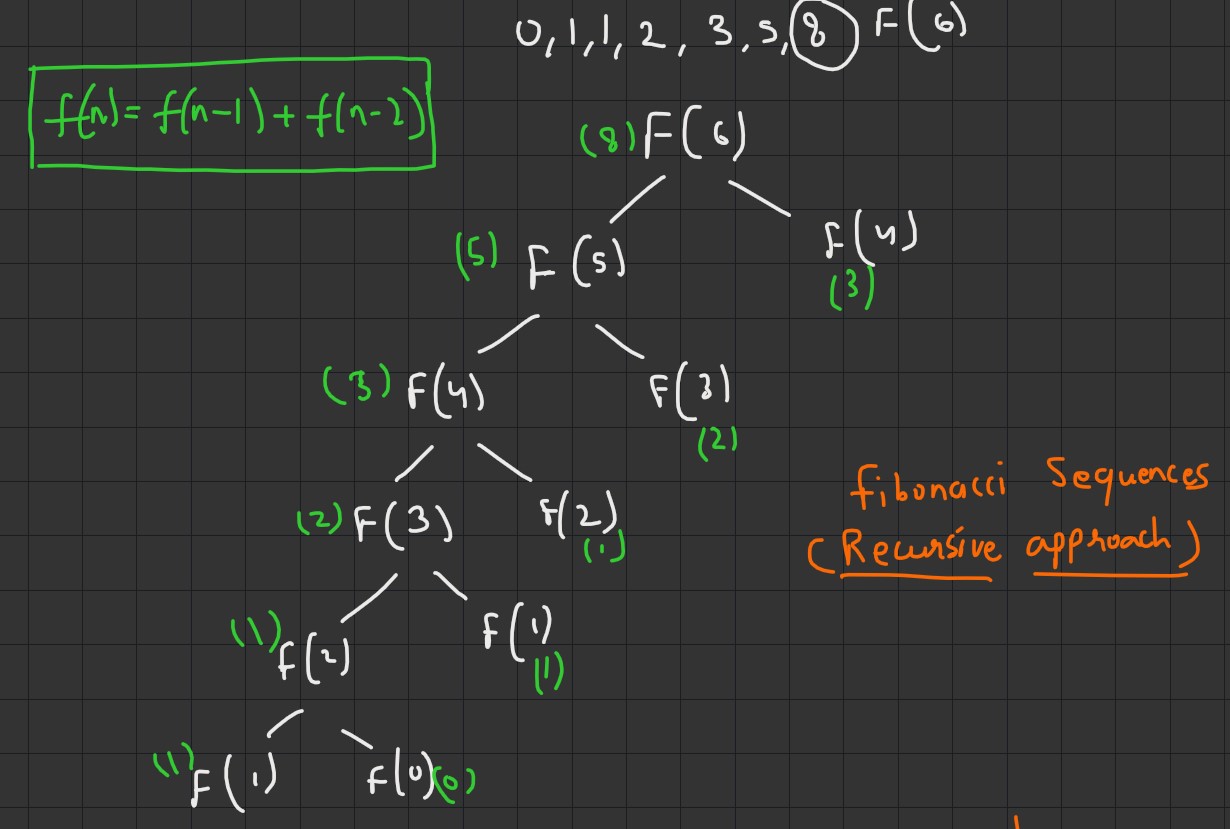 0, 1, 1, 2, 3, 5, 8 F(6)
f(n) = f(n-1) + f(n-2)
(8) F(6)
(5) F(5)
F(4)
(3)
(3) F(4)
F(3)
(2)
(2) F(3)
F(2)
(1)
(1) F(2)
F(1)
(1)
(1) F(1)
F(0) (0)
fibonacci Sequences
(Recursive approach)